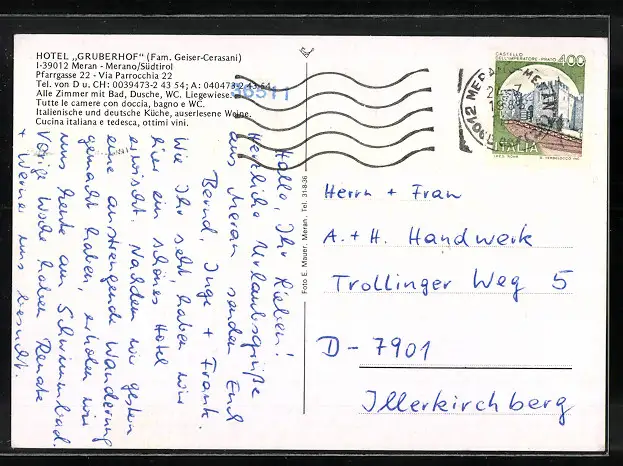 HOTEL „GRUBERHOF" (Fam. Geiser-Cerasani)
I-39012 Meran - Merano/Südtirol
Pfarrgasse 22 - Via Parrocchia 22
Tel. von D u. CH: 0039473-2 43 54; A: 040473-2 43 54
Alle Zimmer mit Bad, Dusche, WC. Liegewiese.
Tutte le camere con doccia, bagno e WC.
Italienische und deutsche Küche, auserlesene Weine.
Cucina italiana e tedesca, ottimi vini.
Hallo, Ihr Lieben!
Herzliche Urlaubsgrüße
aus Meran senden Euch
Bernd, Inge + Frank.
Wie Ihr seht, haben wir
hier ein schönes Hotel
erwischt. Nachdem wir gestern
eine anstrengende Wanderung
gemacht haben, erholen wir
uns heute am Schwimmbad.
Vorige Woche haben Renate
+ Werner uns besucht.
Foto E. Mauer, Meran, Tel. 31-8-36
CASTELLO
DELL'IMPERATORE - PRATO
400
ITALIA
39012 MERANO
Herrn + Frau
A. + H. Handwerk
Trollinger Weg 5
D-7901
Illerkirchberg